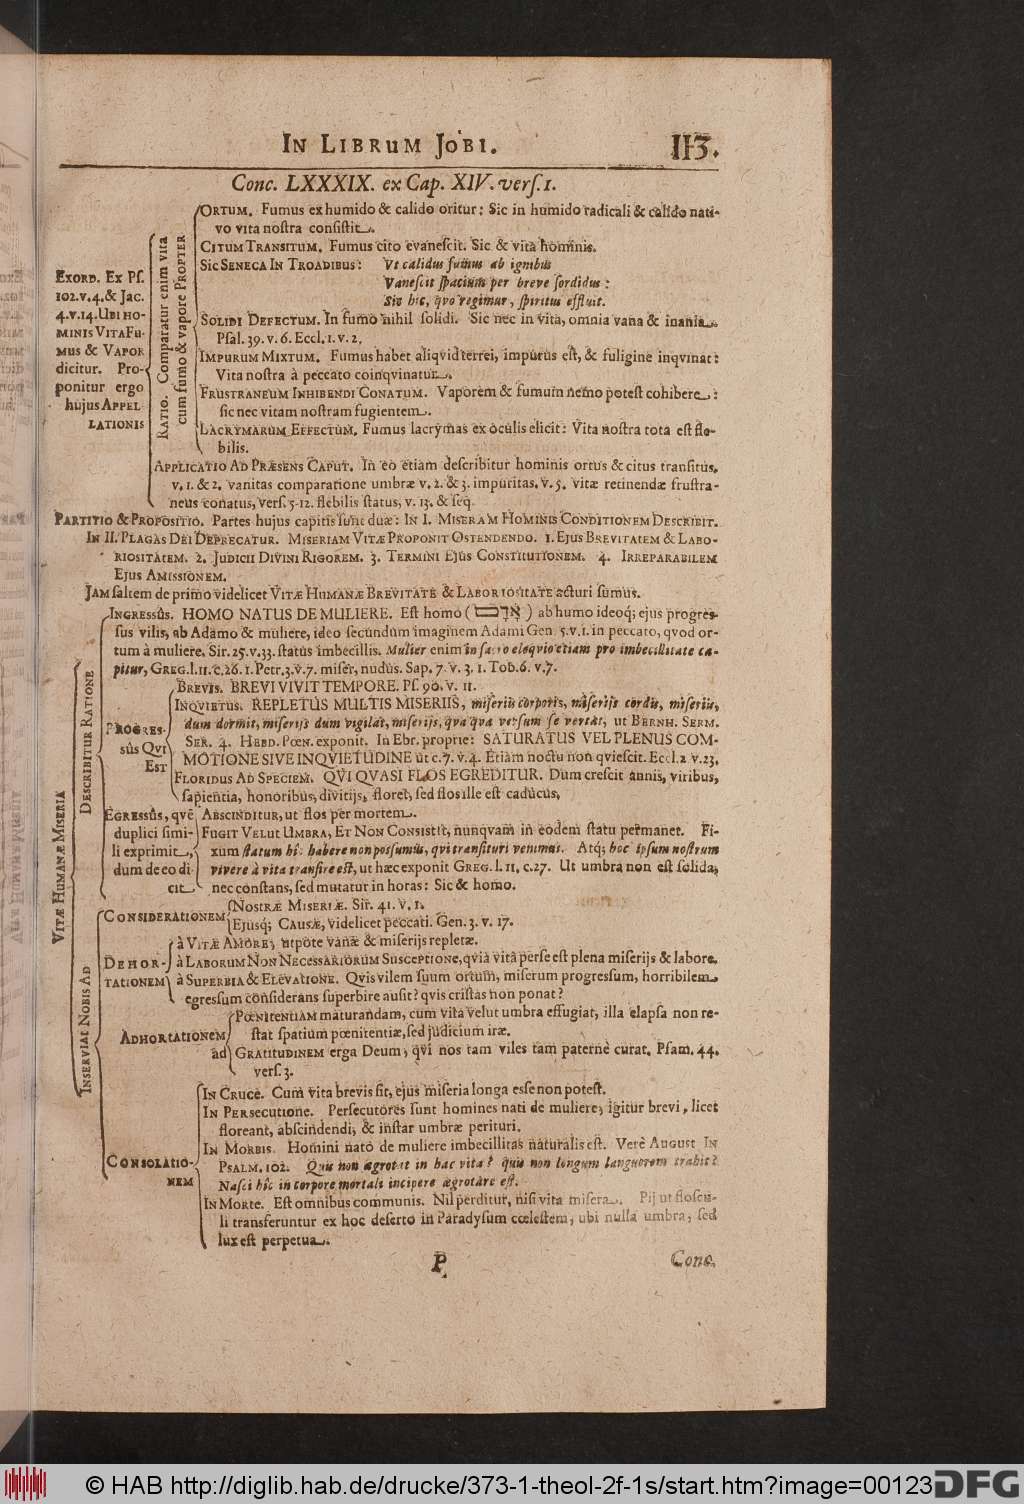 IN LIBRUM JOBI. 113.
Conc. LXXXIX. ex Cap. XIV. vers. 1.
EXORD. EX Ps.
102. v. 4. & Jac.
4. v. 14. UBI HO-
MINIS VITA FU-
MUS & VAPOR
dicitur. Pro-
ponitur ergo
hujus APPEL-
LATIONIS
RATIO. Comparatur enim vita
cum fumo & vapore PROPTER
ORTUM. Fumus ex humido & calido oritur: Sic in humido radicali & calido nati-
vo vita nostra consistit.
CITUM TRANSITUM. Fumus cito evanescit. Sic & vita hominis.
SIC SENECA IN TROADIBUS: Ut calidus fumus ab ignibus
Vanescit spatium per breve sordidus:
Sic hic, qvo regimur, spiritus effluit.
SOLIDI DEFECTUM. In fumo nihil solidi. Sic nec in vita, omnia vana & inania.
Psal. 39. v. 6. Eccl. 1. v. 2.
IMPURUM MIXTUM. Fumus habet aliqvid terrei, impurus est, & fuligine inqvinat:
Vita nostra à peccato coinqvinatur.
FRUSTRANEUM INHIBENDI CONATUM. Vaporem & fumum nemo potest cohibere:
sic nec vitam nostram fugientem.
LACRYMARUM EFFECTUM. Fumus lacrymas ex oculis elicit: Vita nostra tota est fle-
bilis.
APPLICATIO AD PRÆSENS CAPUT. In eo etiam describitur hominis ortus & citus transitus.
v. 1. & 2. vanitas comparatione umbræ v. 2. & 3. impuritas. v. 5. vitæ retinendæ frustra-
neus conatus, vers. 5-12. flebilis status, v. 13. & seq.
PARTITIO & PROPOSITIO. Partes hujus capitis sunt duæ: IN I. MISERAM HOMINIS CONDITIONEM DESCRIBIT.
IN II. PLAGAS DEI DEPRECATUR. MISERIAM VITÆ PROPONIT OSTENDENDO. 1. EJUS BREVITATEM & LABO-
RIOSITATEM. 2. JUDICII DIVINI RIGOREM. 3. TERMINI EJUS CONSTITUTIONEM. 4. IRREPARABILEM
EJUS AMISSIONEM.
JAM saltem de primo videlicet VITÆ HUMANÆ BREVITATE & LABORIOSITATE acturi sumus.
VITÆ HUMANÆ MISERIA
DESCRIBITUR RATIONE
INGRESSÛS. HOMO NATUS DE MULIERE. Est homo (אדם) ab humo ideoq; ejus progres-
sus vilis, ab Adamo & muliere, ideo secundum imaginem Adami Gen. 5. v. 1. in peccato, qvod or-
tum à muliere. Sir. 25. v. 33. status imbecillis. Mulier enim in sacro eloqvio etiam pro imbecillitate ca-
pitur, GREG. l. 11. c. 26. 1. Petr. 3. v. 7. miser, nudus. Sap. 7. v. 3. 1. Tob. 6. v. 7.
PROGRES-
SÛS QVI
EST
BREVIS. BREVI VIVIT TEMPORE. Ps. 90. v. 11.
INQVIETUS. REPLETUS MULTIS MISERIIS, miseriis corporis, miseriis cordis, miseriis,
dum dormit, miseriis dum vigilat, miserijs, qva qva versum se vertat, ut BERNH. SERM.
SER. 4. HEBD. POEN. exponit. In Ebr. proprie: SATURATUS VEL PLENUS COM-
MOTIONE SIVE INQVIETUDINE ut c. 7. v. 4. Etiam noctu non qviescit. Eccl. 2 v. 23.
FLORIDUS AD SPECIEM. QVI QVASI FLOS EGREDITUR. Dum crescit annis, viribus,
sapientia, honoribus, divitijs, floret, sed flos ille est caducus,
EGRESSÛS, qvē
duplici simi-
li exprimit,
dum de eo di-
cit
ABSCINDITUR, ut flos per mortem.
FUGIT VELUT UMBRA, ET NON CONSISTIT, nunqvam in eodem statu permanet. Fi-
xum statum hîc habere non possumus, qvi transituri venimus. Atq; hoc ipsum nostrum
vivere à vita transire est, ut hæc exponit GREG. l. 11, c. 27. Ut umbra non est solida,
nec constans, sed mutatur in horas: Sic & homo.
INSERVIAT NOBIS AD
CONSIDERATIONEM
NOSTRÆ MISERIÆ. Sir. 41. v. 1.
Ejusq; CAUSÆ, videlicet peccati. Gen. 3. v. 17.
DEHOR-
TATIONEM
à VITÆ AMORE, utpote vanæ & miserijs repletæ.
à LABORUM NON NECESSARIORUM SUSCEPTIONE, qvia vita per se est plena miserijs & labore.
à SUPERBIA & ELEVATIONE. Qvis vilem suum ortum, miserum progressum, horribilem
egressum considerans superbire ausit? qvis cristas non ponat?
ADHORTATIONEM
ad
POENITENTIAM maturandam, cum vita velut umbra effugiat, illa elapsa non re-
stat spatium pœnitentiæ, sed judicium iræ.
GRATITUDINEM erga Deum, qvi nos tam viles tam paternè curat. Psam. 44.
vers. 3.
CONSOLATIO-
NEM
IN CRUCE. Cum vita brevis sit, ejus miseria longa esse non potest.
IN PERSECUTIONE. Persecutores sunt homines nati de muliere, igitur brevi, licet
floreant, abscindendi, & instar umbræ perituri.
IN MORBIS. Homini nato de muliere imbecillitas naturalis est. Verè AUGUST IN
PSALM. 102. Quis non ægrotat in hac vita? quis non longum languorem trahit?
Nasci hîc in corpore mortali incipere ægrotare est.
IN MORTE. Est omnibus communis. Nil perditur, nisi vita misera. Pij ut floscu-
li transferuntur ex hoc deserto in Paradysum cœlestem, ubi nulla umbra, sed
lux est perpetua.
P Conc.
© HAB http://diglib.hab.de/drucke/373-1-theol-2f-1s/start.htm?image=00123 DFG